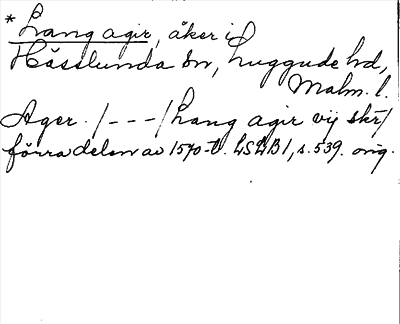 * Lang agir, åker i
Hässlunda sn, Luggude hd,
Malm. l.
Ager. /---/ Lang agir vij skr/
förra delen av 1570-t. LSLB1, s. 539. orig.